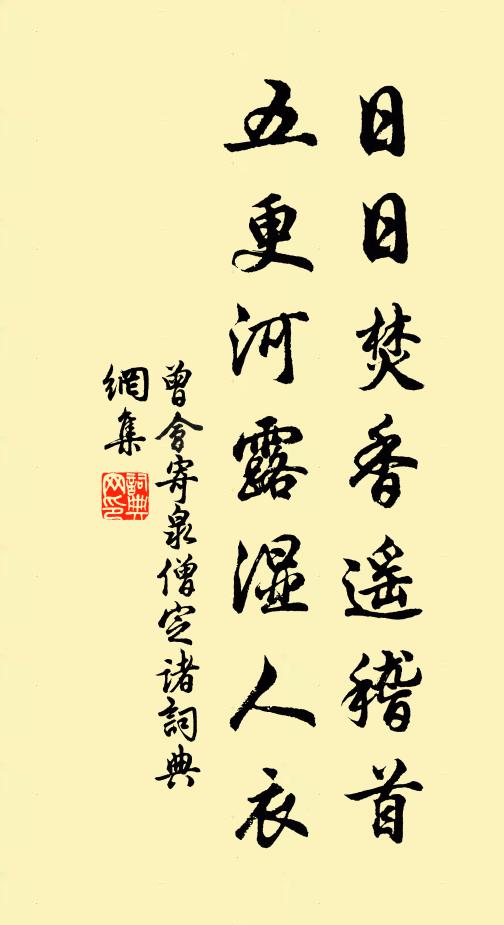 日日焚香遥稽首
五更河露湿人衣
曾會寄泉僧定諸詞典
網集
詞典
网印